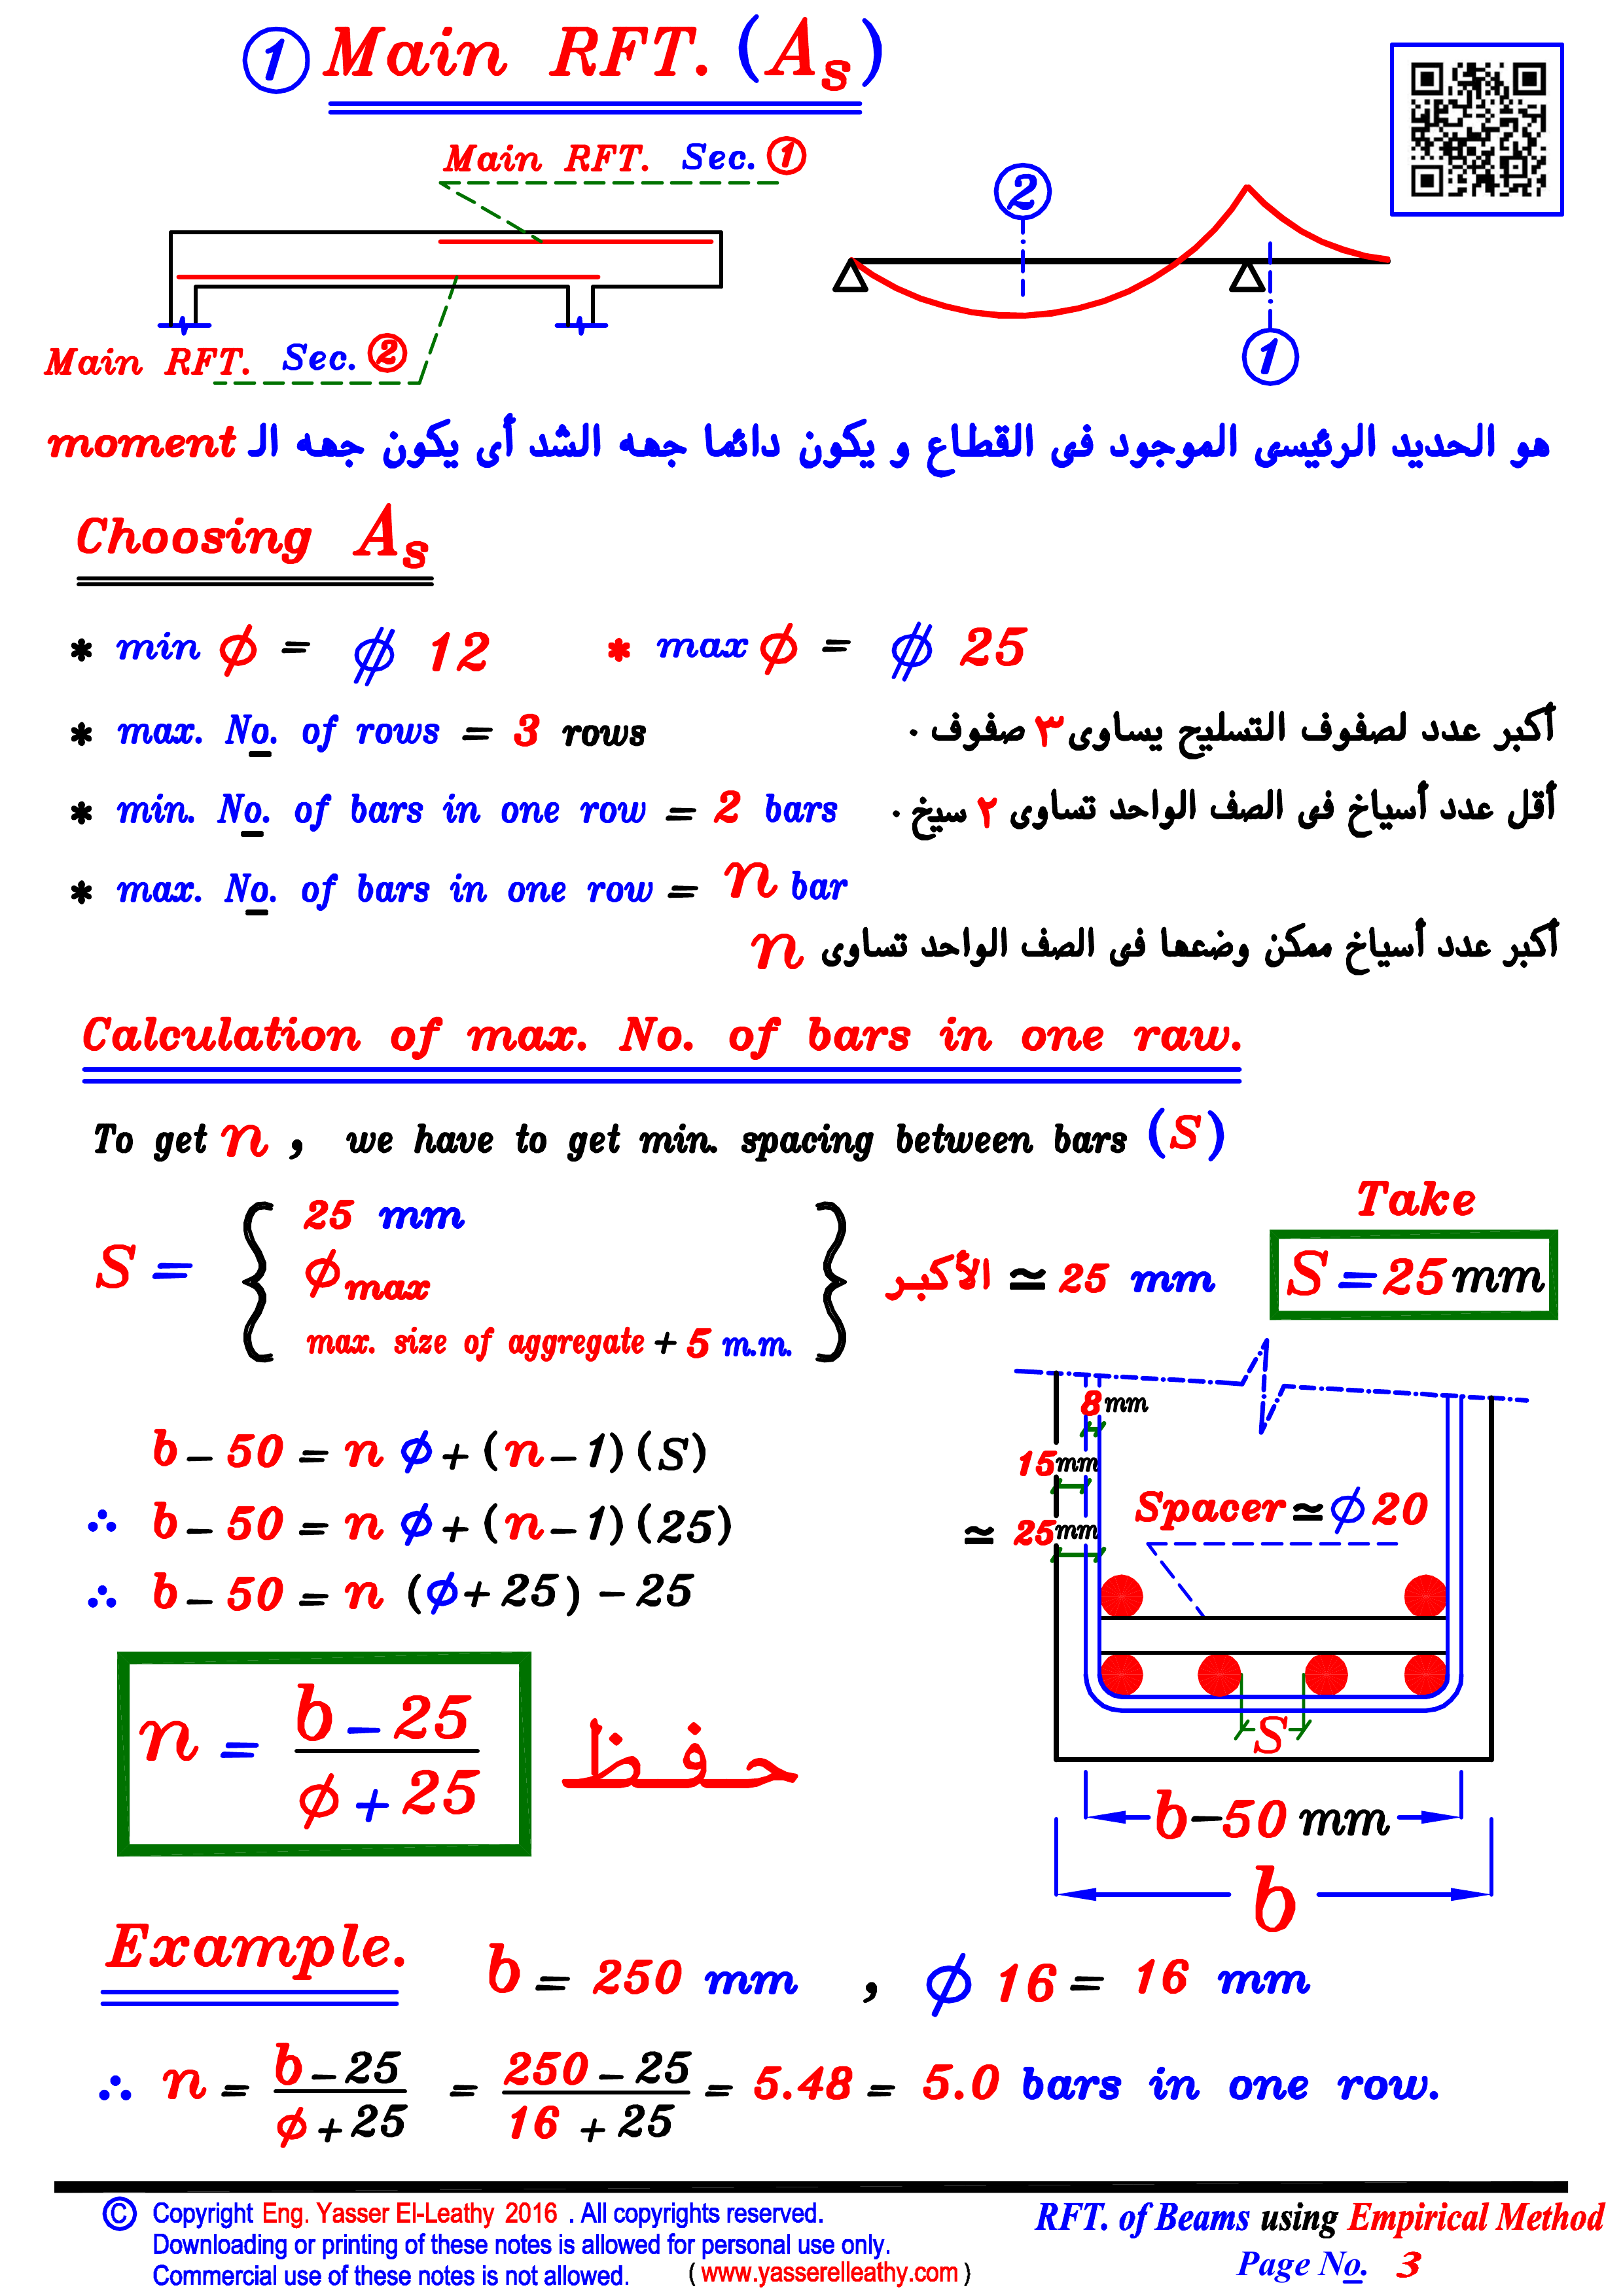 ① Main RFT. (As)
Main RFT. Sec. ①
②
Main RFT. Sec. ②
①
هو الحديد الرئيسى الموجود فى القطاع و يكون دائما جهه الشد أى يكون جهه الـ moment
Choosing As
* min ϕ = ⌀ 12 * max ϕ = ⌀ 25
* max. No. of rows = 3 rows أكبر عدد لصفوف التسليح يساوى ٣ صفوف .
* min. No. of bars in one row = 2 bars أقل عدد أسياخ فى الصف الواحد تساوى ٢ سيخ .
* max. No. of bars in one row = n bar
أكبر عدد أسياخ ممكن وضعها فى الصف الواحد تساوى n
Calculation of max. No. of bars in one raw.
To get n , we have to get min. spacing between bars (S)
Take
S = { 25 mm
ϕmax
max. size of aggregate + 5 m.m. } الأكبر ≃ 25 mm
S = 25 mm
8 mm
15 mm
≃ 25 mm
Spacer ≃ ϕ 20
S
b-50 mm
b
b - 50 = n ϕ + (n - 1) (S)
∴ b - 50 = n ϕ + (n - 1) (25)
∴ b - 50 = n (ϕ + 25) - 25
n = b - 25 / ϕ + 25 حفظ
Example. b = 250 mm , ϕ 16 = 16 mm
∴ n = b - 25 / ϕ + 25 = 250 - 25 / 16 + 25 = 5.48 = 5.0 bars in one row.
© Copyright Eng. Yasser El-Leathy 2016 . All copyrights reserved.
Downloading or printing of these notes is allowed for personal use only.
Commercial use of these notes is not allowed. ( www.yasserelleathy.com )
RFT. of Beams using Empirical Method
Page No. 3